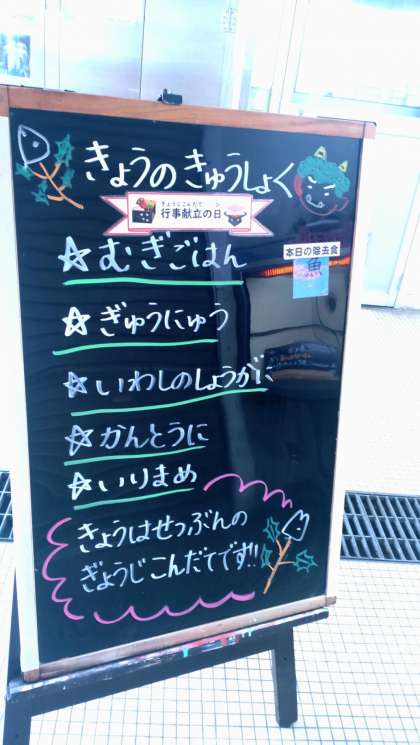 きょうのきゅうしょく
ぎょうじこんだて ひ
行事献立の日
☆むぎごはん
本日の除去食
魚
☆ぎゅうにゅう
☆いわしのしょうがに
☆かんとうに
☆いりまめ
きょうはせつぶんの
ぎょうじこんだてです!!